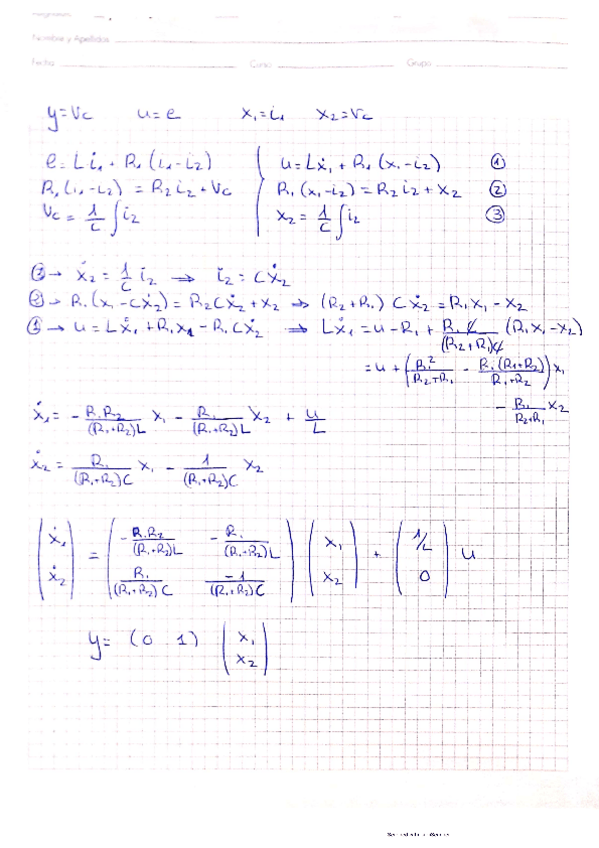 Nombre y Apellidos
Fecha Curso Grupo
y = Vc u = e x₁ = i₁ x₂ = Vc
e = L i̇₁ + R₁ (i₁ - i₂) u = L ẋ₁ + R₁ (x₁ - i₂) ①
R₁ (i₁ - i₂) = R₂ i₂ + Vc R₁ (x₁ - i₂) = R₂ i₂ + x₂ ②
Vc = 1/C ∫ i₂ x₂ = 1/C ∫ i₂ ③
③ → ẋ₂ = 1/C i₂ ⟹ i₂ = C ẋ₂
② → R₁ (x₁ - C ẋ₂) = R₂ C ẋ₂ + x₂ ⟹ (R₂ + R₁) C ẋ₂ = R₁ x₁ - x₂
① → u = L ẋ₁ + R₁ x₁ - R₁ C ẋ₂ ⟹ L ẋ₁ = u - R₁ + R₁ C / (R₂ + R₁) C (R₁ x₁ - x₂)
= u + ( R₁² / R₂ + R₁ - R₁ (R₁ + R₂) / R₁ + R₂ ) x₁
- R₁ / R₂ + R₁ x₂
ẋ₁ = - R₁ R₂ / (R₁ + R₂) L x₁ - R₁ / (R₁ + R₂) L x₂ + u / L
ẋ₂ = R₁ / (R₁ + R₂) C x₁ - 1 / (R₁ + R₂) C x₂
( ẋ₁ ẋ₂ ) = ( - R₁ R₂ / (R₁ + R₂) L - R₁ / (R₁ + R₂) L R₁ / (R₁ + R₂) C -1 / (R₁ + R₂) C ) ( x₁ x₂ ) + ( 1/L 0 ) u
y = (0 1) ( x₁ x₂ )